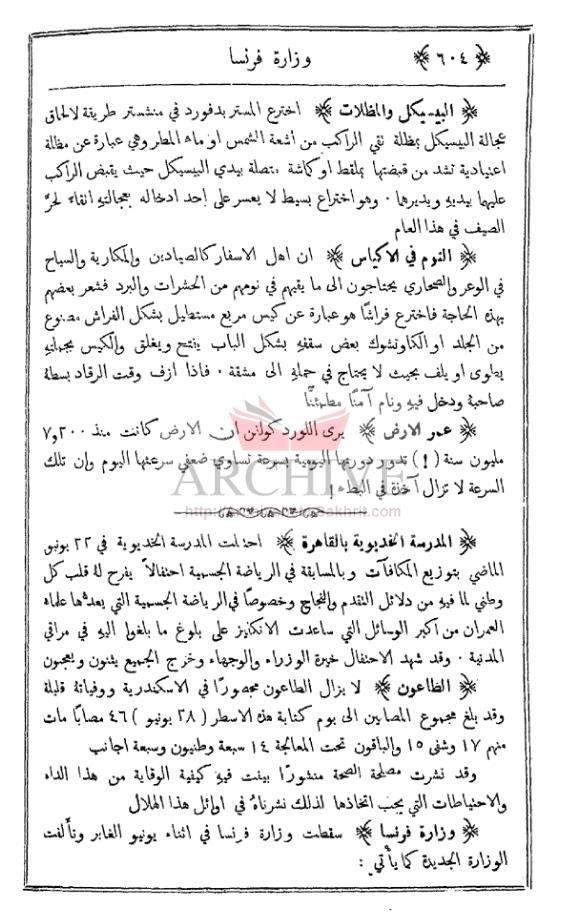 ﴿٦٠٤﴾ وزارة فرنسا
﴿ البيسيكل والمظلات ﴾ اخترع المستر بدفورد في منشستر طريقة لالحاق
عجالة البيسيكل بمظلة تقي الراكب من اشعة الشمس او ماء المطر وهي عبارة عن مظلة
اعتيادية تشد من قبضتها بملقط او كماشة متصلة بيدي البيسيكل حيث يقبض الراكب
عليها بيديهِ ويديرها ٠ وهو اختراع بسيط لا يعسر على احد ادخاله بعجالتهِ اتقاء لحرّ
الصيف في هذا العام
﴿ النوم في الاكياس ﴾ ان اهل الاسفار كالصيادين والمكارية والسياح
في الوعر والصحاري يحتاجون الى ما يقيهم في نومهم من الحشرات والبرد فشعر بعضهم
بهذه الحاجة فاخترع فراشًا هو عبارة عن كيس مربع مستطيل بشكل الفراش مصنوع
من الجلد او الكاوتشوك بعض سقفهِ بشكل الباب يفتح ويغلق والكيس بجملتهِ
يطوى او يلف بحيث لا يحتاج في حملهِ الى مشقة ٠ فاذا ازف وقت الرقاد بسطهُ
صاحبهُ ودخل فيهِ ونام آمنًا مطمئنًّا
﴿ عمر الارض ﴾ يرى اللورد كولنن ان الارض كانت منذ ٧٫٢٠٠
مليون سنة (!) تدور دورتها اليومية بسرعة تساوي ضعفي سرعتها اليوم وان تلك
السرعة لا تزال آخذة في البطء !
ARCHIVE
﴿ المدرسة الخديوية بالقاهرة ﴾ احتفلت المدرسة الخديوية في ٢٢ يونيو
الماضي بتوزيع المكافآت وبالمسابقة في الرياضة الجسمية احتفالاً يفرح لهُ قلب كل
وطني لما فيهِ من دلائل التقدم والنجاح وخصوصًا في الرياضة الجسمية التي يعدها علماء
العمران من اكبر الوسائل التي ساعدت الانكليز على بلوغ ما بلغوا اليهِ في مراقي
المدنية ٠ وقد شهد الاحتفال خيرة الوزراء والوجهاء وخرج الجميع يثنون ويعجبون
﴿ الطاعون ﴾ لا يزال الطاعون محصورًا في الاسكندرية ووفياتهُ قليلة
وقد بلغ مجموع المصابين الى يوم كتابة هذه الاسطر ( ٢٨ يونيو ) ٤٦ مصابًا مات
منهم ١٧ وشفى ١٥ والباقون تحت المعالجة ١٤ سبعة وطنيون وسبعة اجانب
وقد نشرت مصلحة الصحة منشورًا بينت فيهِ كيفية الوقاية من هذا الداء
والاحتياطات التي يجب اتخاذها لذلك نشرناهُ في اوائل هذا الهلال
﴿ وزارة فرنسا ﴾ سقطت وزارة فرنسا في اثناء يونيو الغابر وتألفت
الوزارة الجديدة كما يأتي :